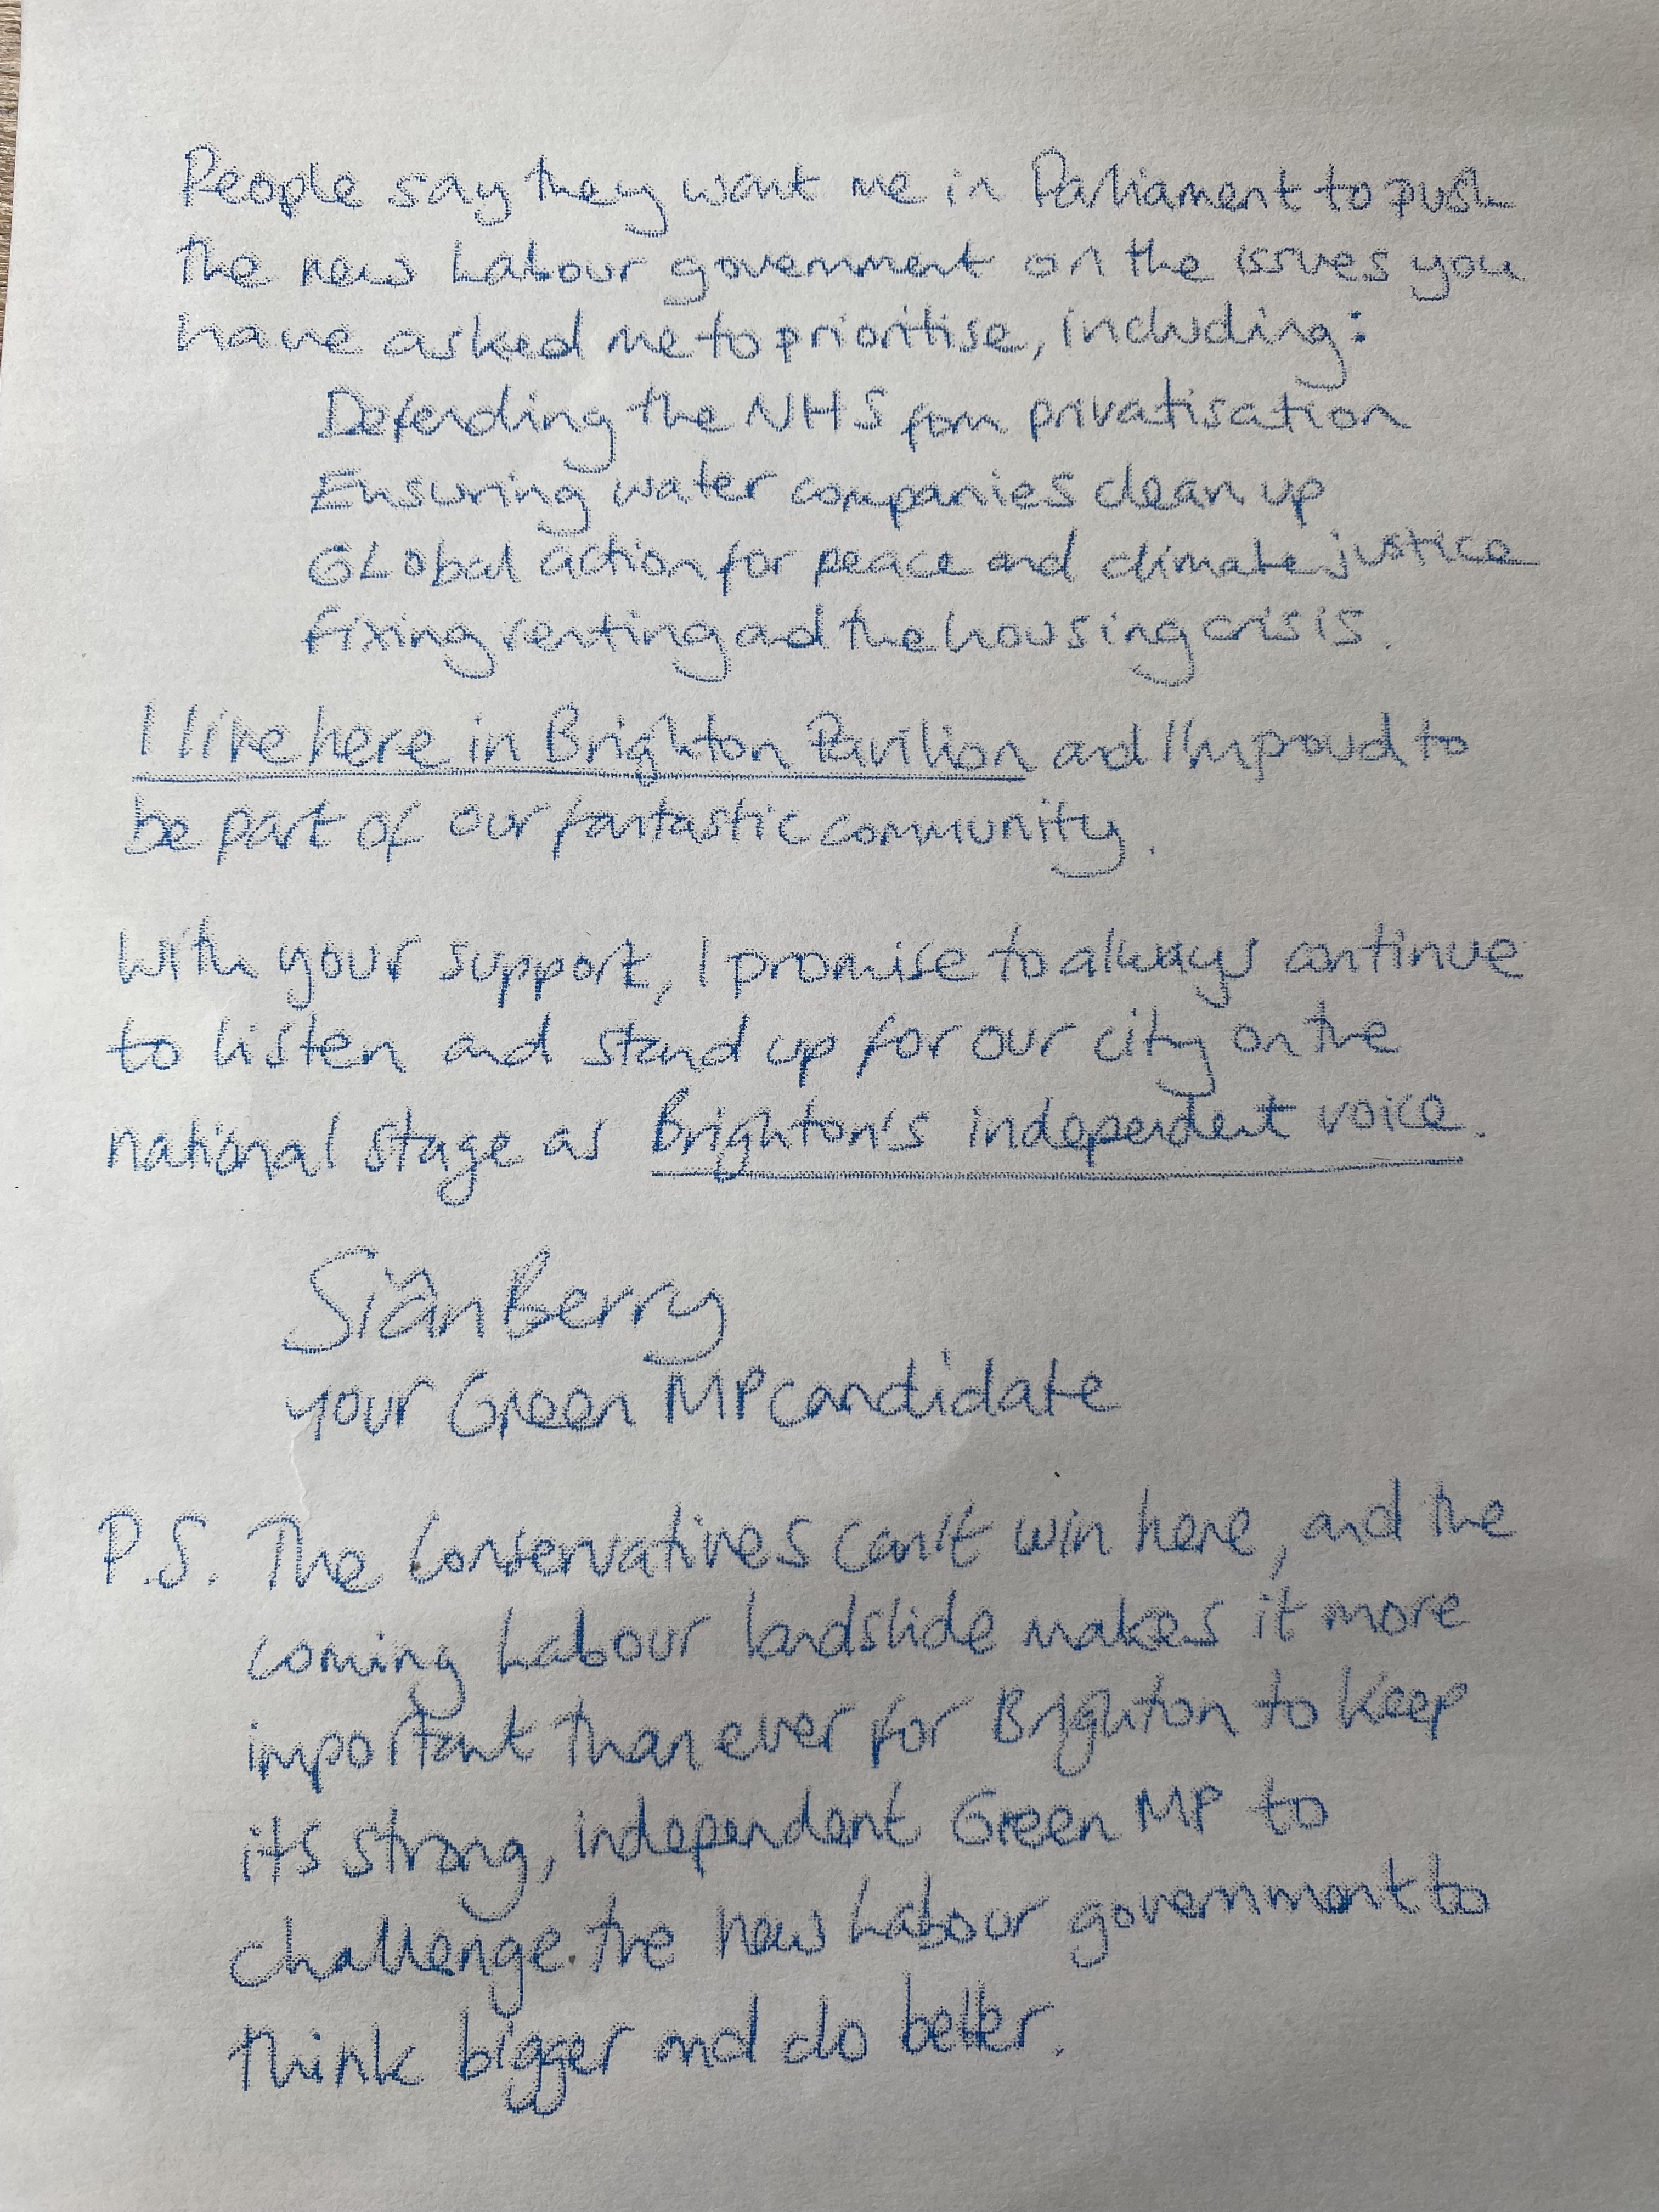 People say they want me in Parliament to push
the new Labour government on the issues you
have asked me to prioritise, including:
Defending the NHS from privatisation
Ensuring water companies clean up
Global action for peace and climate justice
Fixing renting and the housing crisis.
I live here in Brighton Pavilion and I'm proud to
be part of our fantastic community.
With your support, I promise to always continue
to listen and stand up for our city on the
national stage as Brighton's independent voice.
Siân Berry
your Green MP candidate
P.S. The Conservatives can't win here, and the
coming Labour landslide makes it more
important than ever for Brighton to keep
its strong, independent Green MP to
challenge the new Labour government to
think bigger and do better.